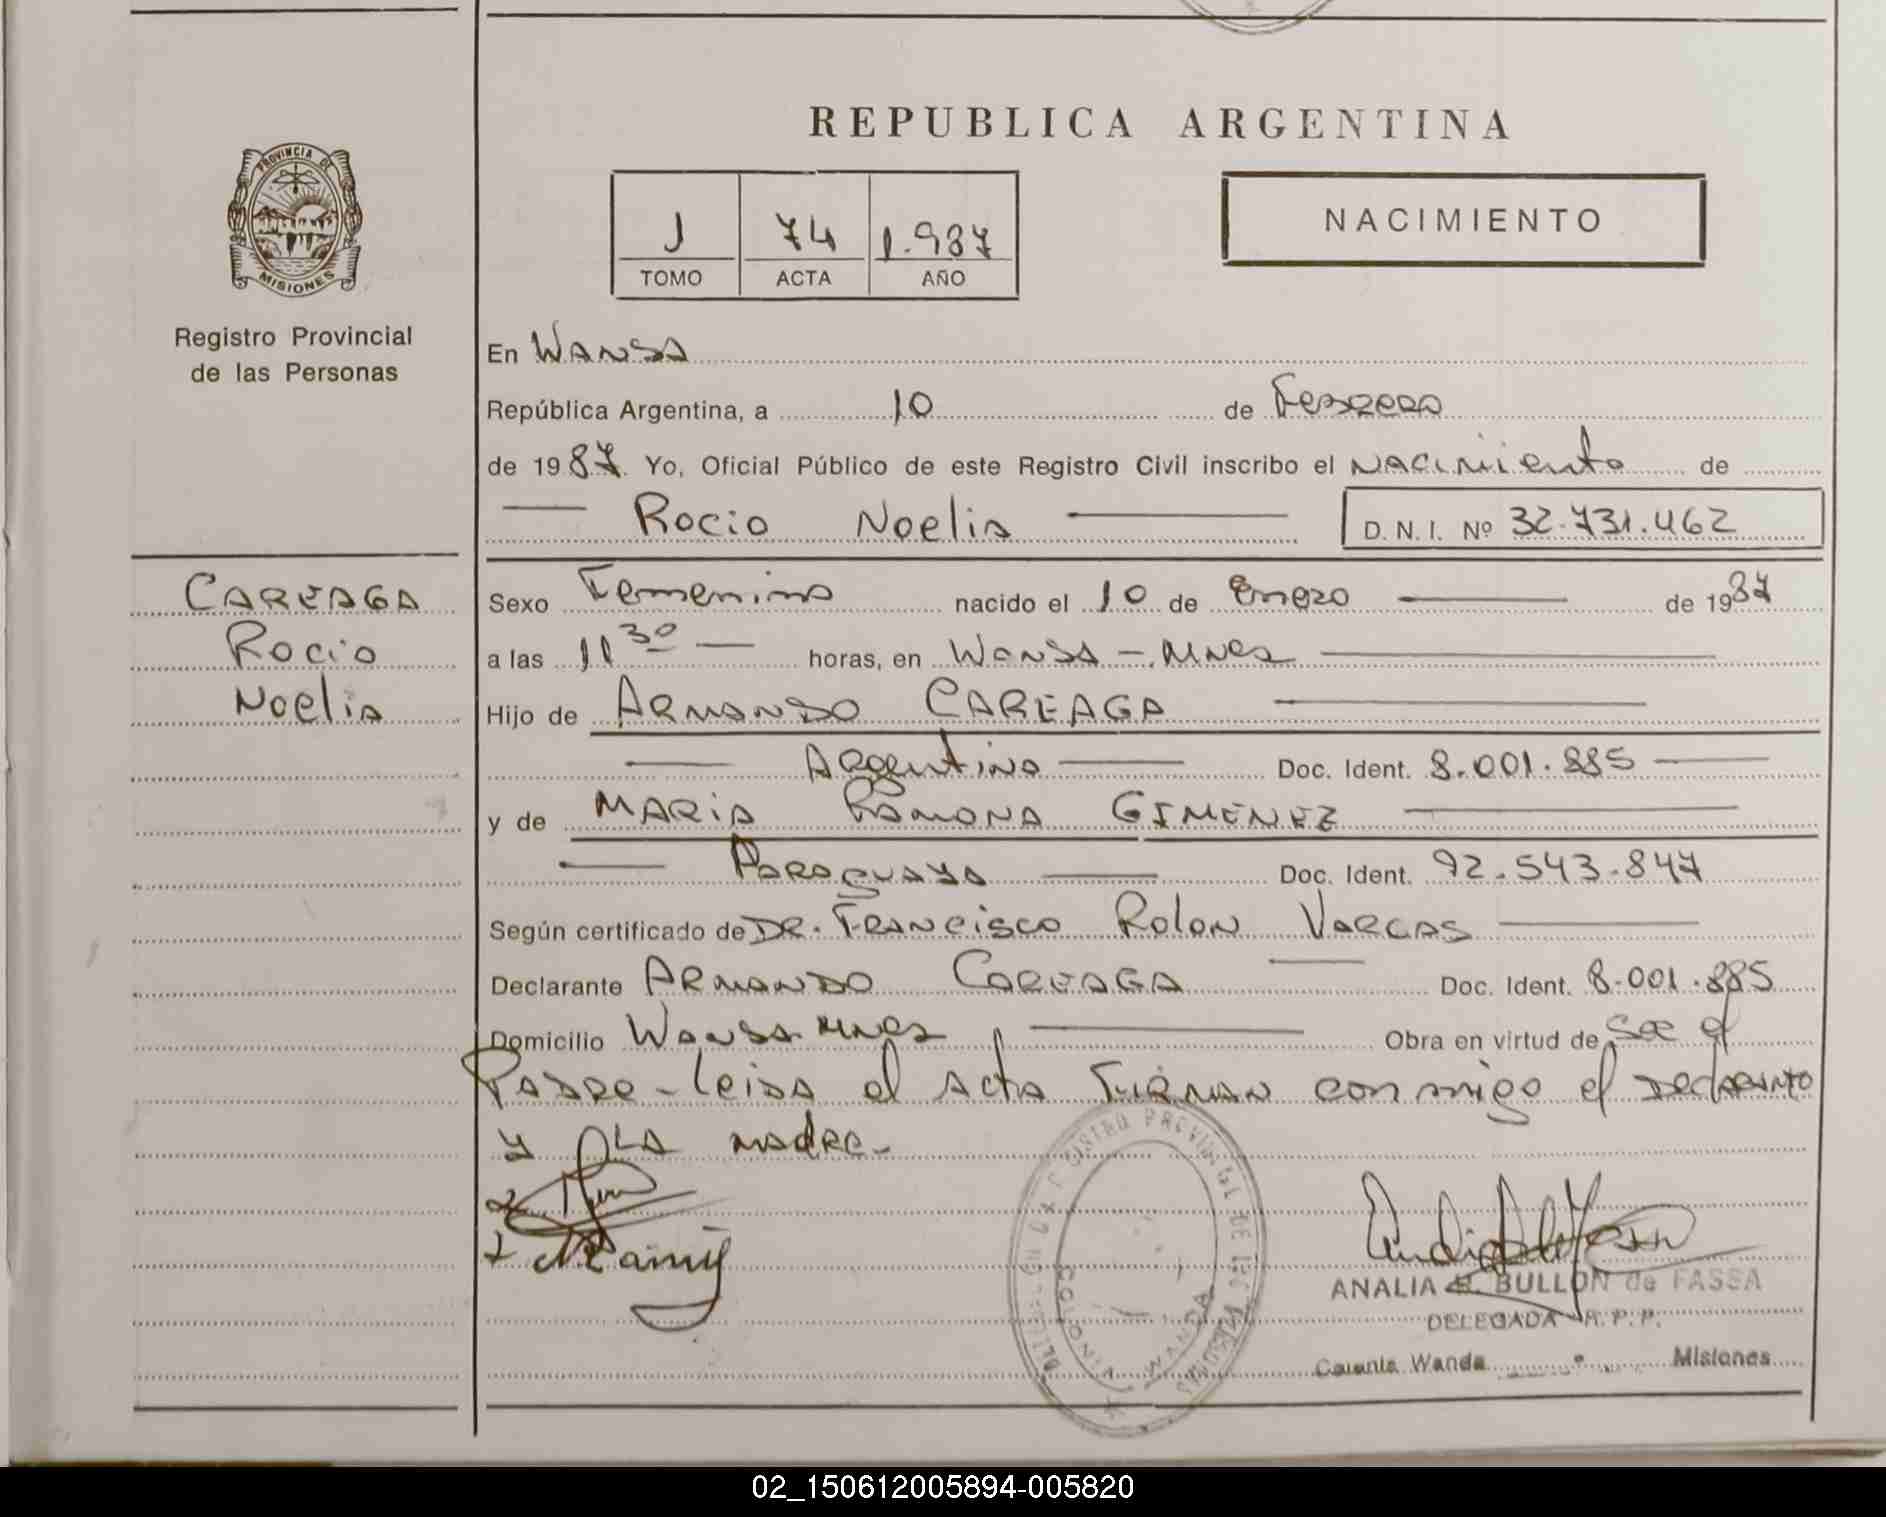 REPUBLICA ARGENTINA
PROVINCIA DE
MISIONES
Registro Provincial
de las Personas
J 74 1.987
TOMO ACTA AÑO
NACIMIENTO
En WANDA
República Argentina, a 10 de Febrero
de 1987. Yo, Oficial Público de este Registro Civil inscribo el Nacimiento de
Rocio Noelia D. N. I. Nº 32.731.462
CAREAGA
Rocio
Noelia
Sexo Femenino nacido el 10 de Enero de 1987
a las 11 30 horas, en Wanda - Mnes
Hijo de ARMANDO CAREAGA
Argentino Doc. Ident. 8.001.885
y de MARIA RAMONA GIMENEZ
Paraguaya Doc. Ident. 92.543.847
Según certificado de DR. FRANCISCO Rolon VARGAS
Declarante ARMANDO CAREAGA Doc. Ident. 8.001.885
Domicilio Wanda Mnes Obra en virtud de Ser el
Padre - Leida el Acta Firman conmigo el Declarante
y LA madre.-
REGISTRO PROVINCIAL DE LAS
COLONIA WANDA
MISIONES
ANALIA E. BULLON de FASSA
DELEGADA R. P. P.
Colonia Wanda Misiones
02_150612005894-005820